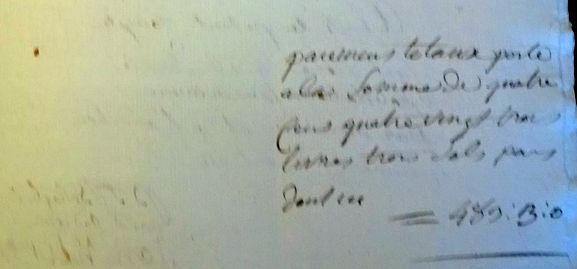 paiemens totaux porte
a la Somme de quatre
Cens quatre vingt trois
livres trois Sols pour
= 483 : 3 : 0